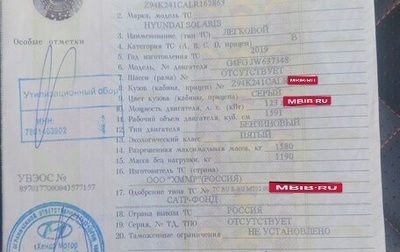 Z94K241CALR162863
2. Марка, модель ТС
HYUNDAI SOLARIS
3. Наименование (тип ТС) ЛЕГКОВОЙ
4. Категория ТС (A, B, C, D, прицеп) B
5. Год изготовления ТС 2019
6. Модель, № двигателя G4FGJW637348
7. Шасси (рама) № ОТСУТСТВУЕТ
8. Кузов (кабина, прицеп) № Z94K241CAL
9. Цвет кузова (кабины, прицепа) СЕРЫЙ
10. Мощность двигателя, л. с. (кВт) 123 MBIB.RU
11. Рабочий объем двигателя, куб. см 1591
12. Тип двигателя БЕНЗИНОВЫЙ
13. Экологический класс ПЯТЫЙ
14. Разрешенная максимальная масса, кг 1580
15. Масса без нагрузки, кг 1190
16. Изготовитель ТС (страна)
ООО "ХММР" (РОССИЯ)
17. Одобрение типа ТС № MBIB.RU
САТР-ФОНД
18. Страна вывоза ТС РОССИЯ
19. Серия, № ТД, ТПО ОТСУТСТВУЕТ
20. Таможенные ограничения НЕ УСТАНОВЛЕНО
Особые отметки
Утилизационный сбор
ИНН:
7801463902
УВЭОС №
«Хендэ Мотор